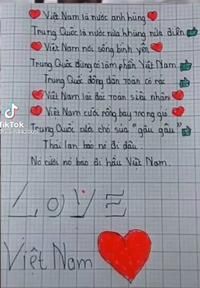 Việt Nam là nước anh hùng
Trung Quốc là nước nửa khùng nửa điên
Việt Nam nơi sống bình yên
Trung Quốc đừng có xâm phần Việt Nam
Trung Quốc đông dân toàn cỏ rác
Việt Nam lại đặc toàn siêu nhân
Việt Nam cưỡi rồng bay trong gió
Trung Quốc cưỡi chó sủa "gâu gâu"
Thái Lan bảo nó đi đâu
Nó cười nó bảo đi hầu Việt Nam.
LOVE
Việt Nam
TikTok